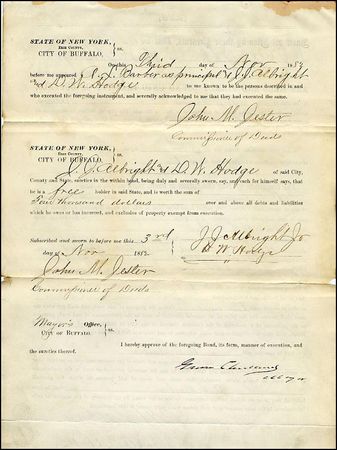 STATE OF NEW YORK,
ERIE COUNTY,
CITY OF BUFFALO.
ss.
On this Third day of Nov
before me appeared Barber as principal & J. J. Albright
and D. W. Hodge to me known to be the persons described in and
who executed the foregoing instrument, and severally acknowledged to me that they had executed the same.
John M. Jester
Commissioner of Deeds
STATE OF NEW YORK,
ERIE COUNTY,
CITY OF BUFFALO.
ss.
J. J. Albright & D. W. Hodge of said City,
County and State, sureties in the within bond, being duly and severally sworn, say, each for himself says, that
he is a free holder in said State, and is worth the sum of
Four thousand dollars over and above all debts and liabilities
which he owes or has incurred, and exclusive of property exempt from execution.
Subscribed and sworn to before me this 3rd
day of Nov 188
J. J. Albright Jr
D W Hodge
John M. Jester
Commissioner of Deeds
Mayor's Office,
CITY OF BUFFALO.
ss.
I hereby approve of the foregoing Bond, its form, manner of execution, and
the sureties thereof.
Grover Cleveland
Mayor